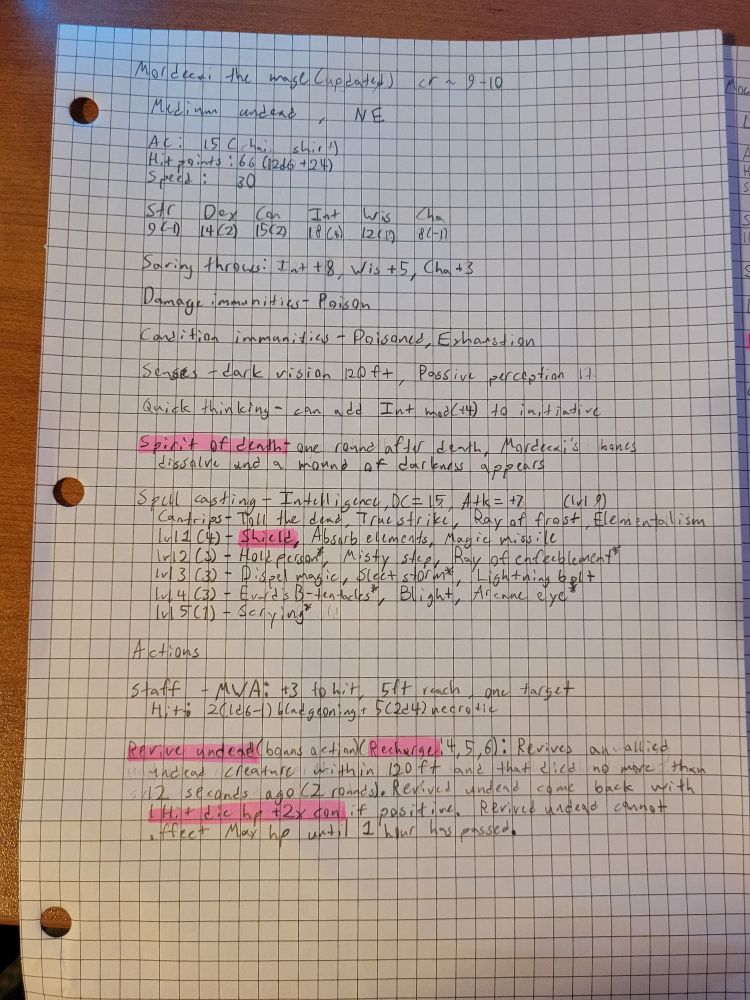 Mordecai the mage (updated) cr ~ 9-10
Medium undead, NE
AC: 15 (chain shirt)
Hit points: 66 (12d6 +24)
Speed: 30
Str Dex Con Int Wis Cha
9(-1) 14(2) 15(2) 18(4) 12(1) 8(-1)
Saving throws: Int +8, Wis +5, Cha +3
Damage immunities - Poison
Condition immunities - Poisoned, Exhaustion
Senses - dark vision 120 ft, Passive perception
Quick thinking - can add Int mod(+4) to initiative
Spirit of death - one round after death, Mordecai's bones
dissolve and a mound of darkness appears
Spell casting - Intelligence, DC = 15, Atk = +7 (lvl 9)
Cantrips - Toll the dead, True strike, Ray of frost, Elementalism
lvl 1 (4) - Shield, Absorb elements, Magic missile
lvl 2 (3) - Hold person*, Misty step, Ray of enfeeblement*
lvl 3 (3) - Dispel magic, Sleet storm*, Lightning bolt
lvl 4 (3) - Evard's B-tentacles*, Blight, Arcane eye*
lvl 5 (1) - Scrying*
Actions
Staff - MWA: +3 to hit, 5ft reach, one target
Hit: 2(1d6-1) bludgeoning + 5(2d4) necrotic
Revive undead (bonus action) (Recharge 4,5,6): Revives an allied
undead creature within 120 ft and that died no more than
12 seconds ago (2 rounds). Revived undead come back with
1 Hit die hp +2x con if positive. Revived undead cannot
effect Max hp until 1 hour has passed.